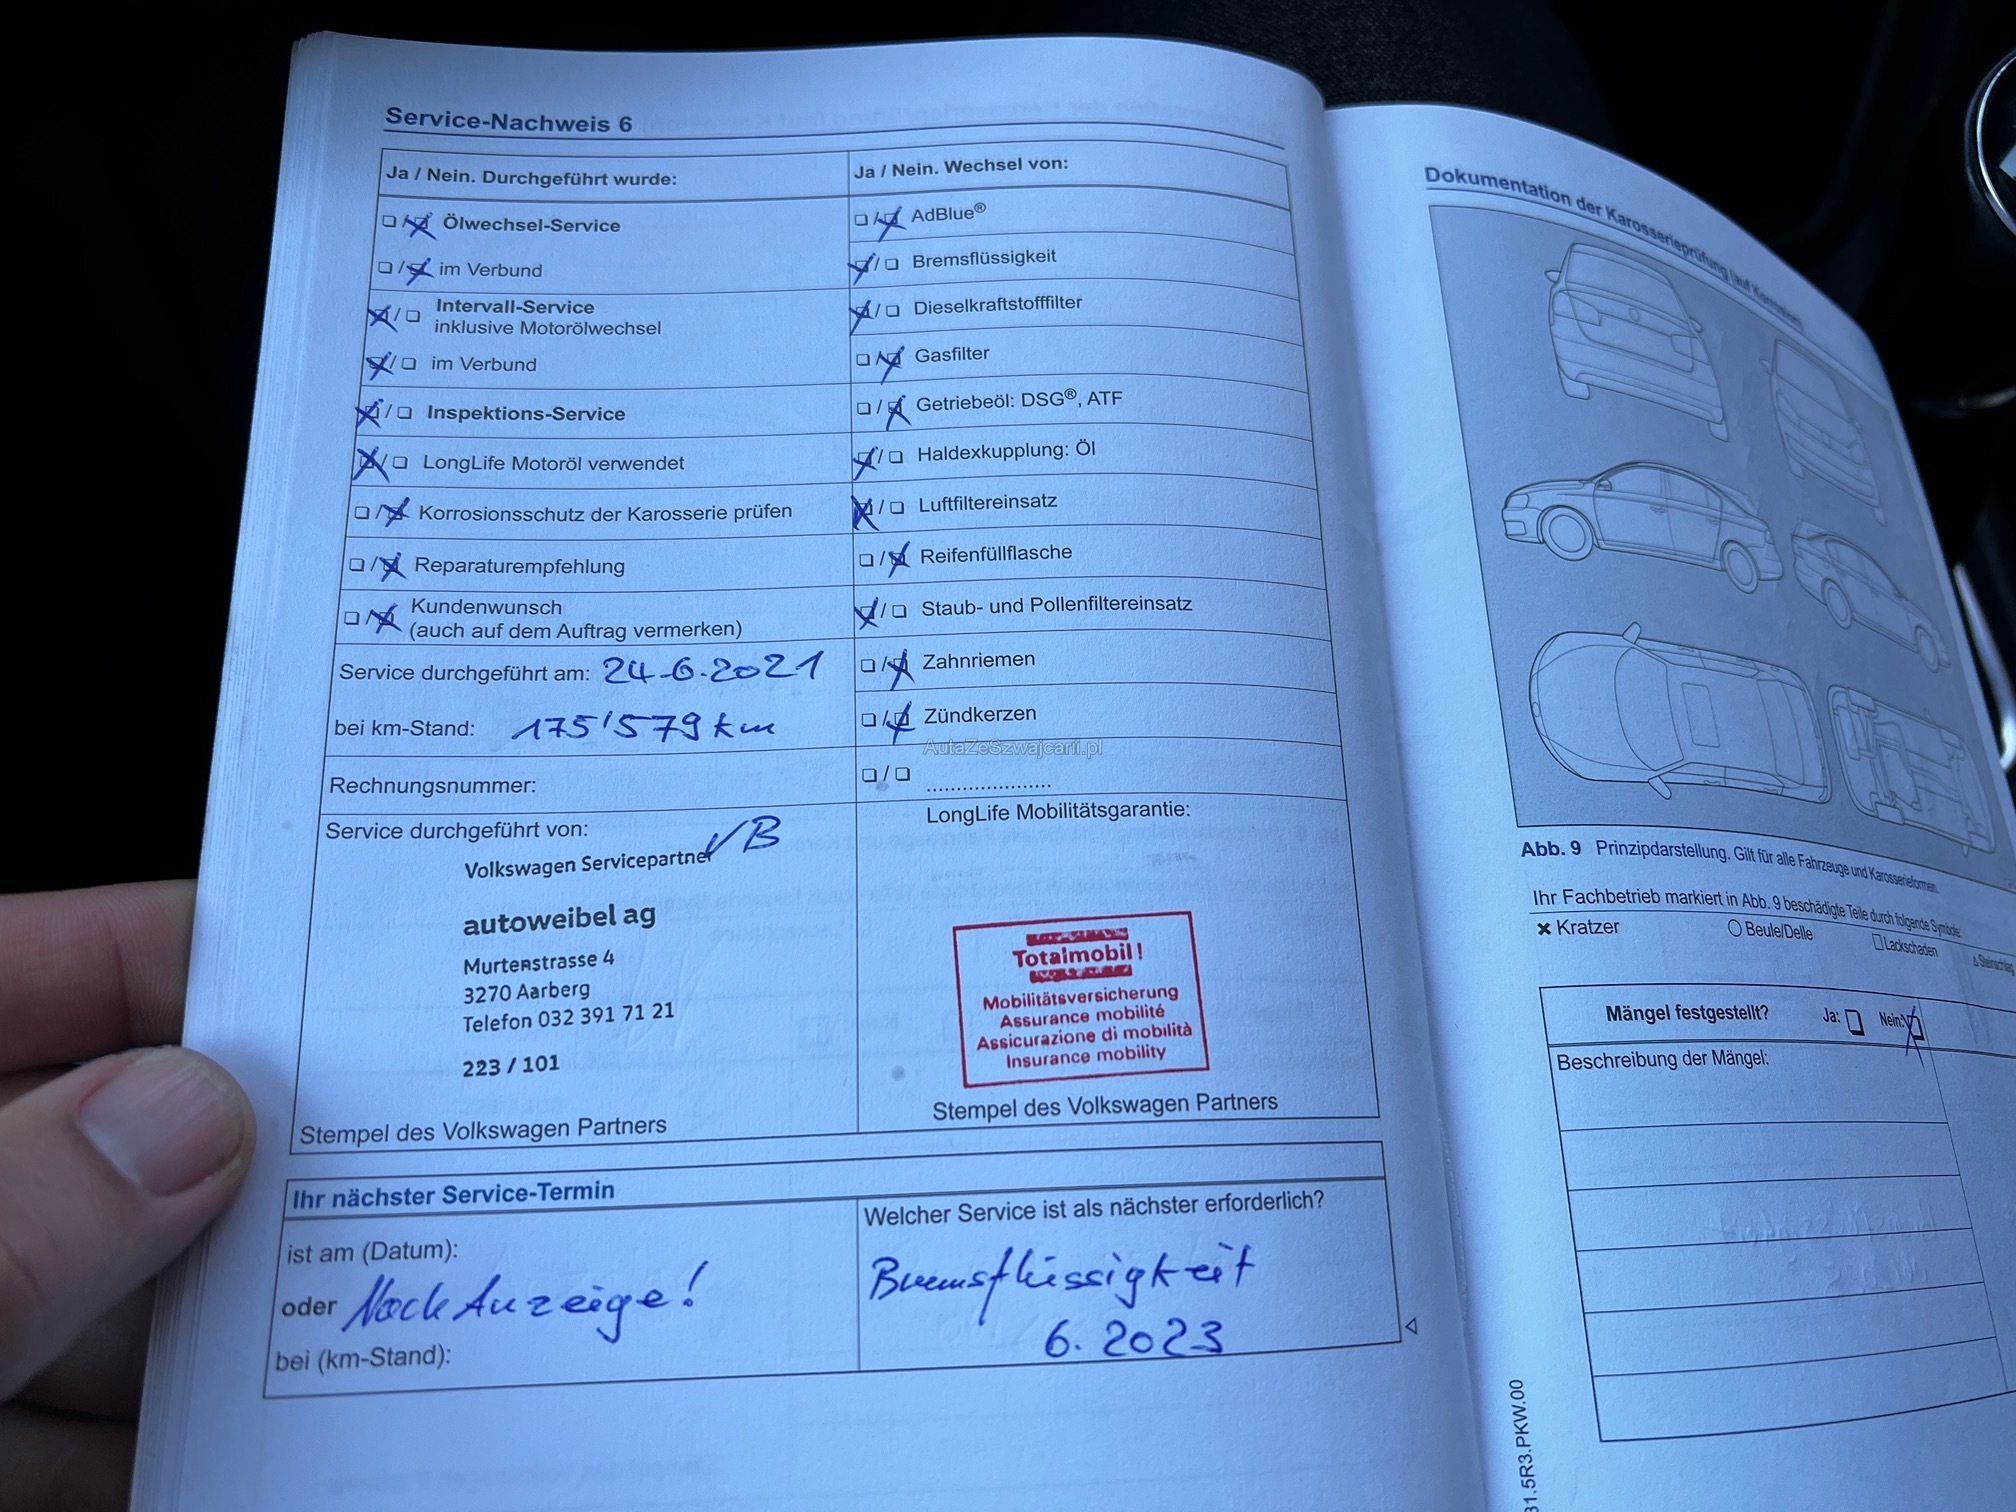 Service-Nachweis 6
Ja / Nein. Durchgeführt wurde:
Ölwechsel-Service
im Verbund
Intervall-Service
inklusive Motorölwechsel
im Verbund
Inspektions-Service
LongLife Motoröl verwendet
Korrosionsschutz der Karosserie prüfen
Reparaturempfehlung
Kundenwunsch
(auch auf dem Auftrag vermerken)
Service durchgeführt am: 24.6.2021
bei km-Stand: 175'579 km
Rechnungsnummer:
Service durchgeführt von:
Volkswagen Servicepartner
autoweibel ag
Murtenstrasse 4
3270 Aarberg
Telefon 032 391 71 21
223 / 101
Stempel des Volkswagen Partners
Ja / Nein. Wechsel von:
AdBlue®
Bremsflüssigkeit
Dieselkraftstofffilter
Gasfilter
Getriebeöl: DSG®, ATF
Haldexkupplung: Öl
Luftfiltereinsatz
Reifenfüllflasche
Staub- und Pollenfiltereinsatz
Zahnriemen
Zündkerzen
AutaZeSzwajcarii.pl
LongLife Mobilitätsgarantie:
Totalmobil!
Mobilitätsversicherung
Assurance mobilité
Assicurazione di mobilità
Insurance mobility
Stempel des Volkswagen Partners
Ihr nächster Service-Termin
ist am (Datum):
oder Nach Anzeige!
bei (km-Stand):
Welcher Service ist als nächster erforderlich?
Bremsflüssigkeit
6. 2023
Dokumentation der Karosserieprüfung (auf Korrosion)
Abb. 9 Prinzipdarstellung. Gilt für alle Fahrzeuge und Karosserieformen.
Ihr Fachbetrieb markiert in Abb. 9 beschädigte Teile durch folgende Symbole:
Kratzer
Beule/Delle
Lackschaden
Steinschlag
Mängel festgestellt? Ja: Nein:
Beschreibung der Mängel:
31.5R3.PKW.00